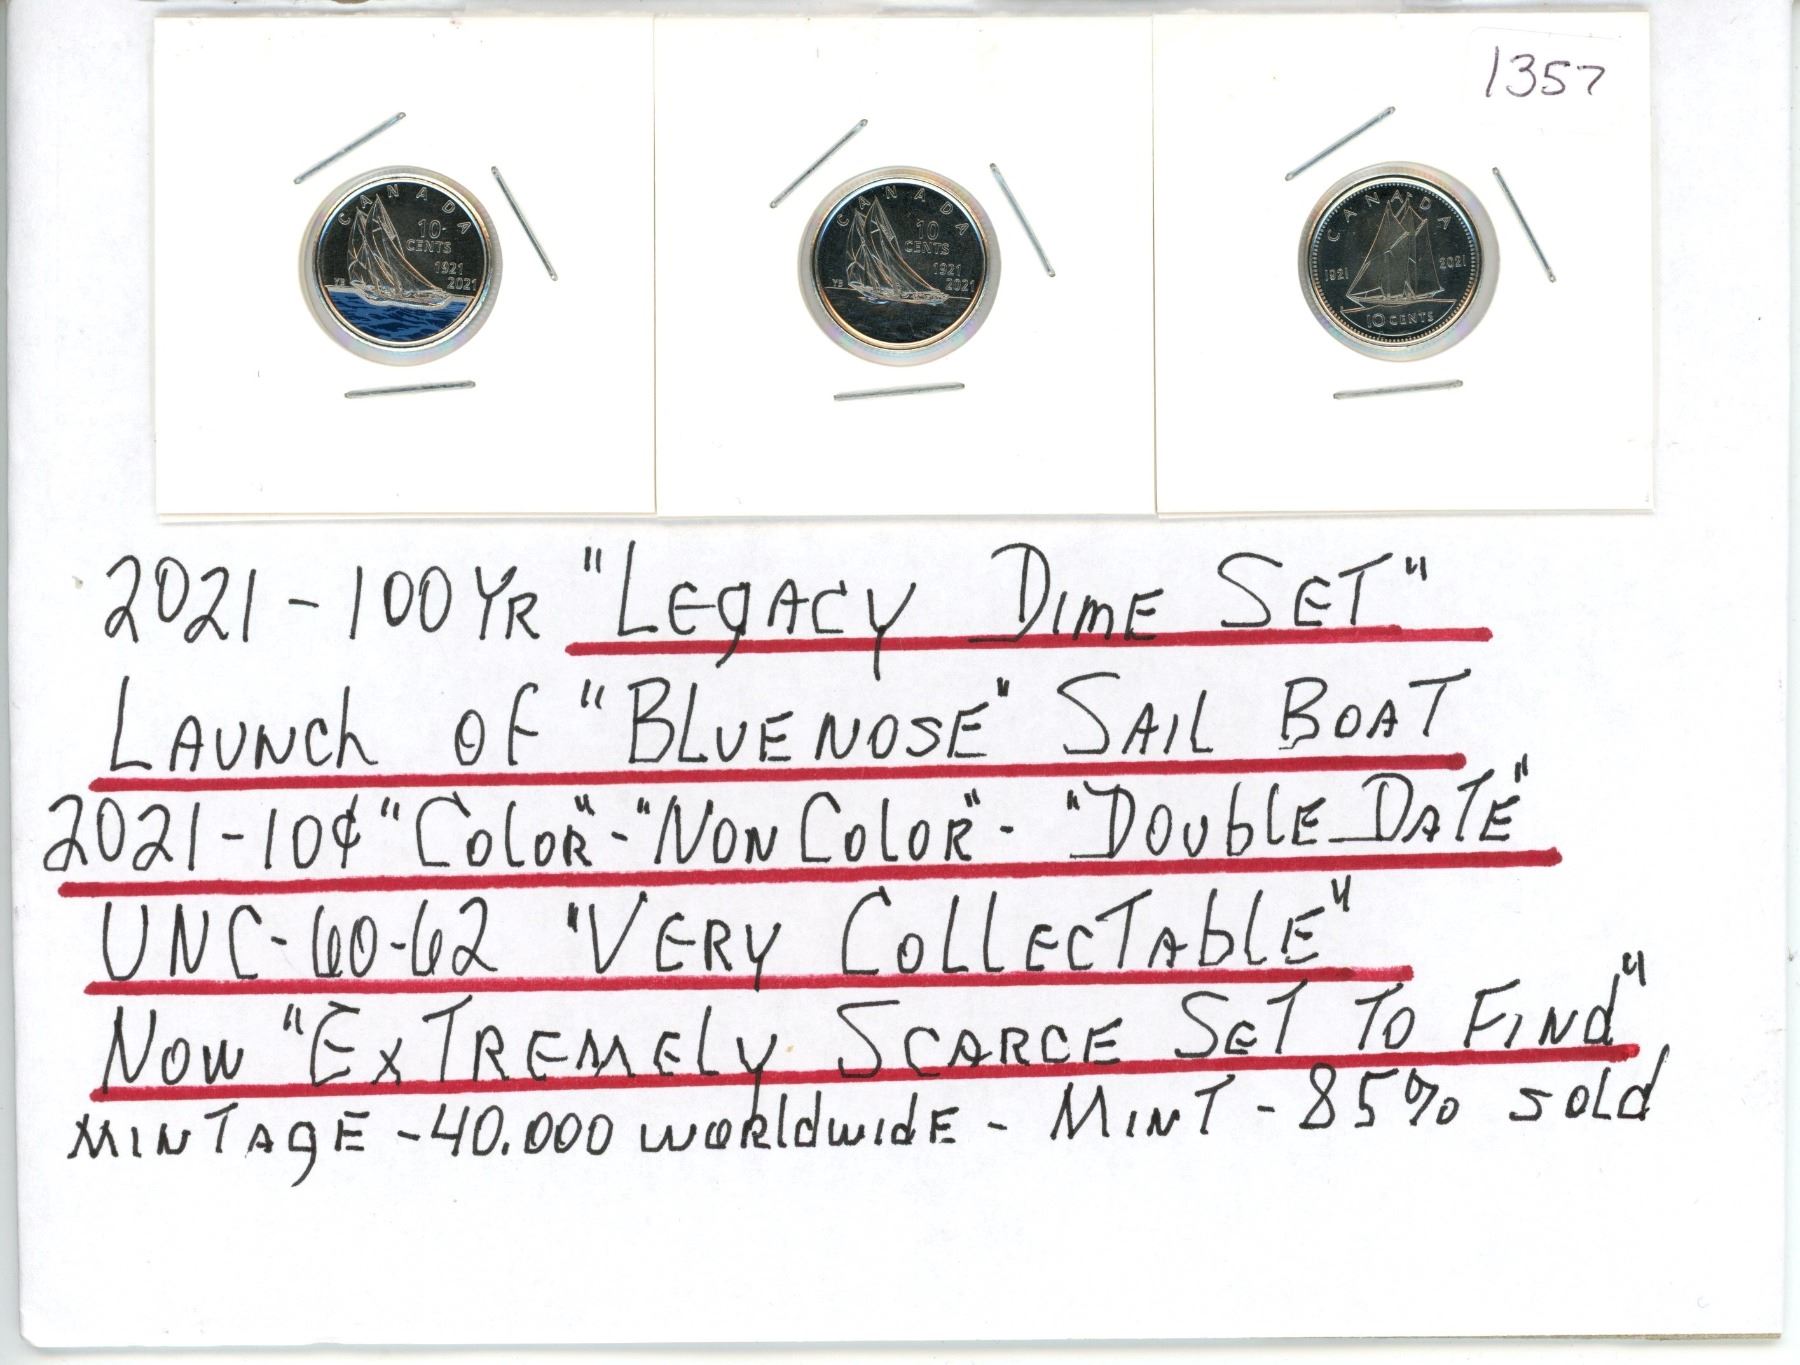 1357
CANADA
10
CENTS
1921
2021
YB
CANADA
10
CENTS
1921
2021
YB
CANADA
1921 2021
10 CENTS
2021 - 100 YR "LEgACY DIME SET"
LAUNCh OF "BLUENOSE" SAIL BOAT
2021 - 10¢ "COloR" - "NON COloR" - "DOUblE DATE"
UNC-60-62 "VERY COllECTAblE"
NOW "ExTREMElY SCARCE SET TO FINd"
MINTAgE - 40.000 WORldwIdE - MINT - 85% SOld